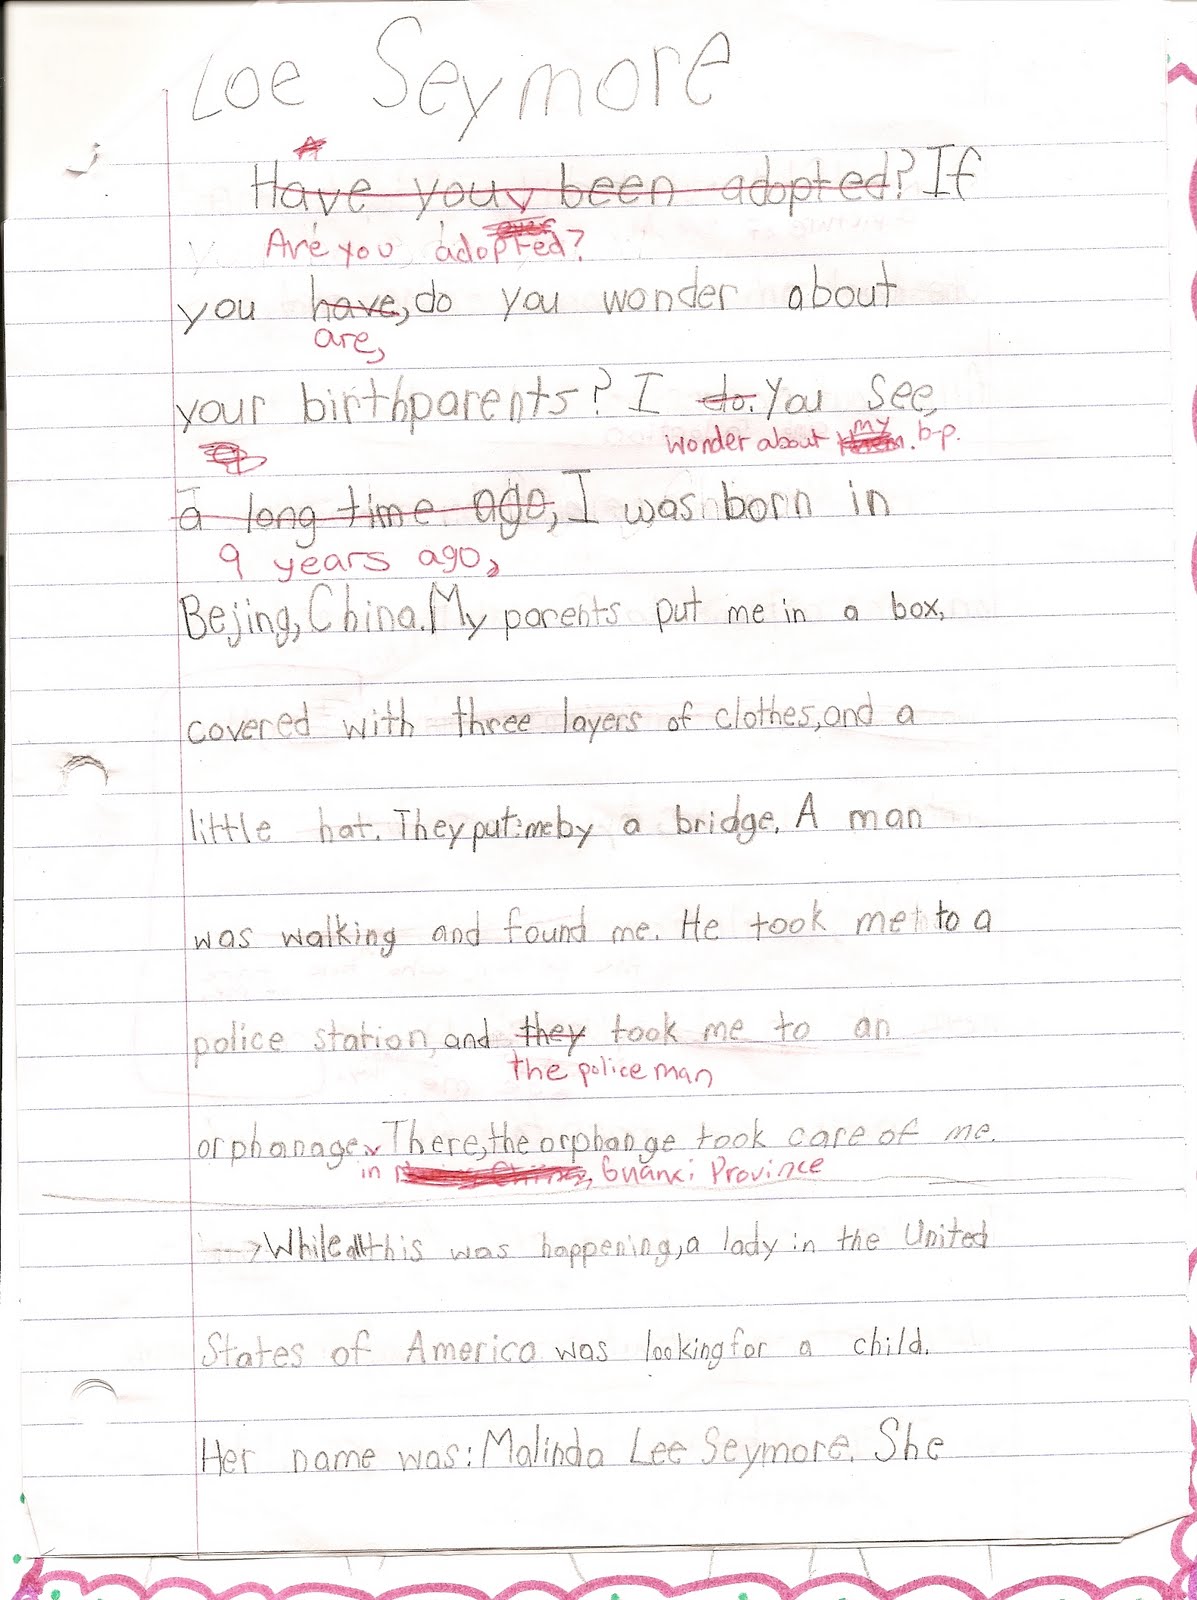 Loe Seymore
Have you been adopted? If
ever
Are you adopted?
you have, do you wonder about
are,
your birthparents? I do. You see,
wonder about my them. b-p.
a long time ago, I was born in
9 years ago,
Bejing, China. My parents put me in a box,
covered with three layers of clothes, and a
little hat. They put me by a bridge. A man
was walking and found me. He took me to a
police station, and they took me to an
the police man
orphanage. There, the orphange took care of me.
in Guanxi Province
→ While all this was happening, a lady in the United
States of America was looking for a child.
Her name was: Malinda Lee Seymore. She